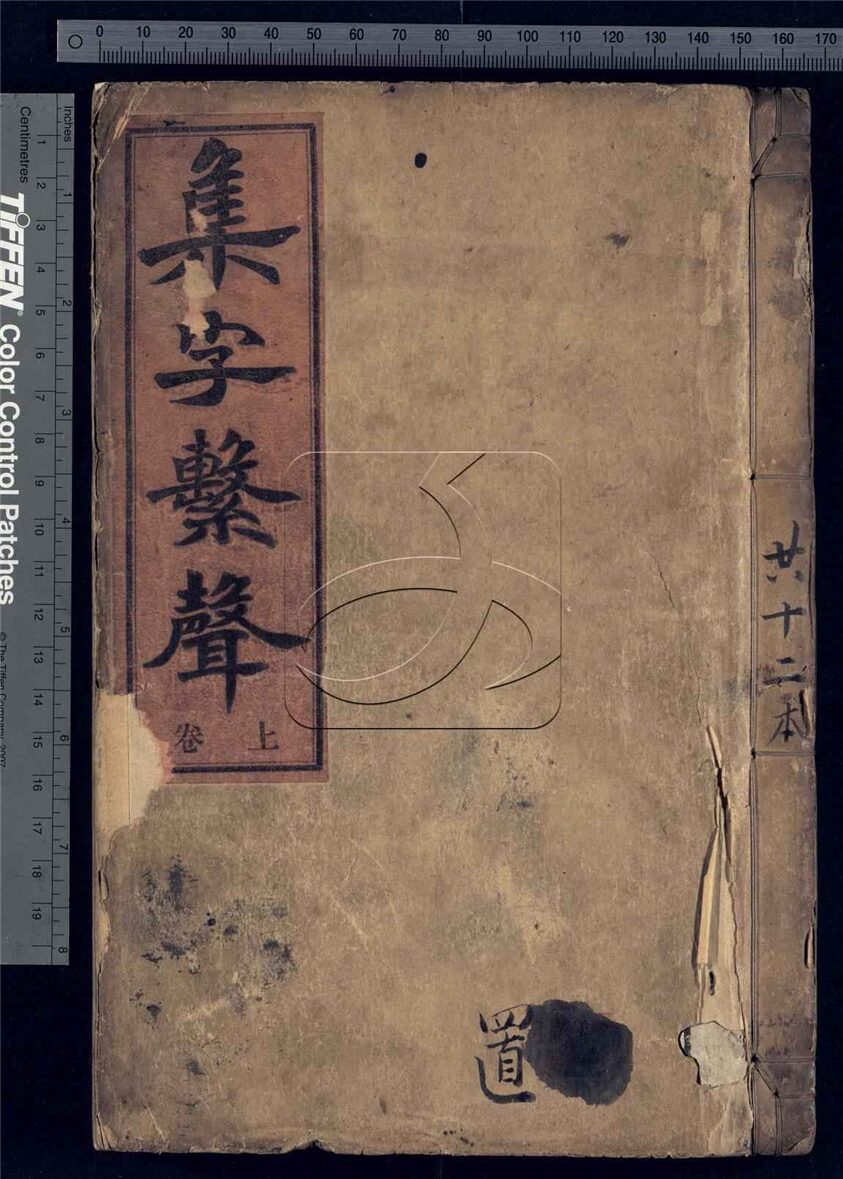 集字繫聲
上卷
共十二本
置
0 10 20 30 40 50 60 70 80 90 100 110 120 130 140 150 160 170
Inches
1 2 3 4 5 6 7 8
Centimetres
1 2 3 4 5 6 7 8 9 10 11 12 13 14 15 16 17 18 19
TIFFEN® Color Control Patches
© The Tiffen Company, 2007